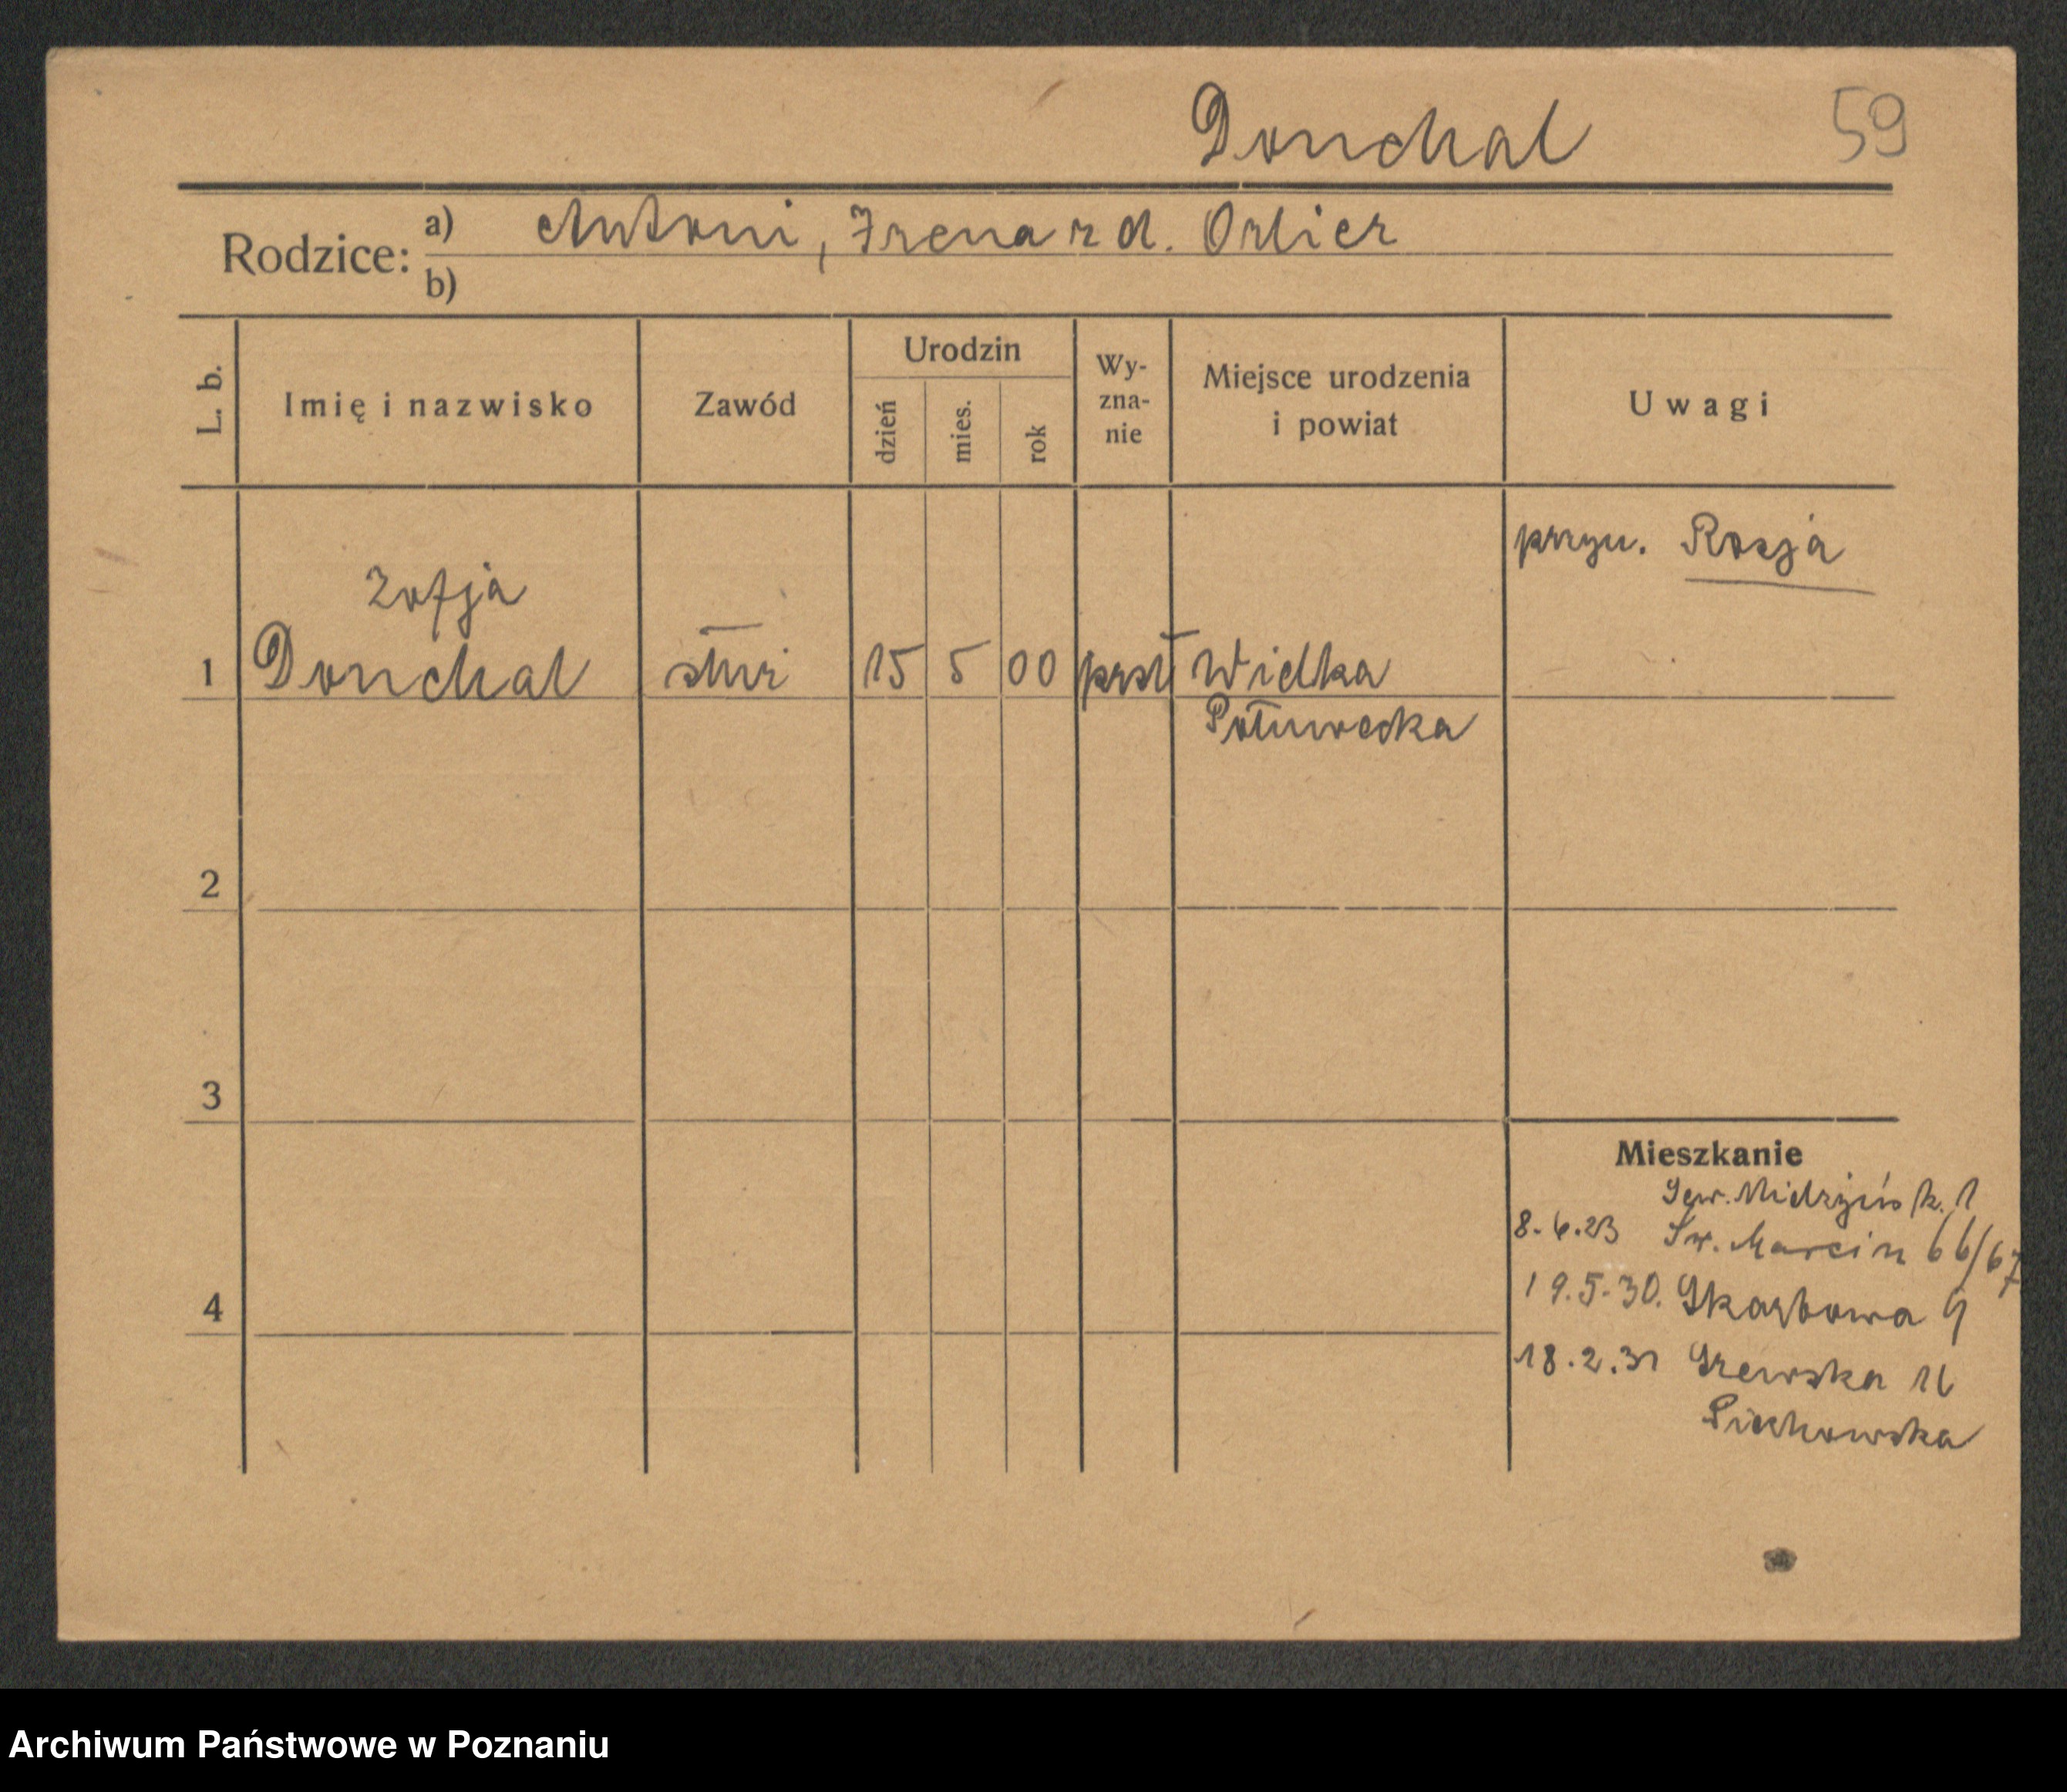 Donchal 59
Rodzice: a) Antoni, Irena rd. Orlier
b)
L. b. Imię i nazwisko Zawód Urodzin dzień mies. rok Wy-zna-nie Miejsce urodzenia i powiat Uwagi
przyn. Rosja
Zofja
1 Donchal służ 15 5 00 prsł Wielka
Połuwecka
2
3
Mieszkanie
k. 1
8.6.23 Św. Marcin 66/67
4 19.5.30. Skarbowa 9
18.2.31 Szewska 16
Piechowska
Archiwum Państwowe w Poznaniu